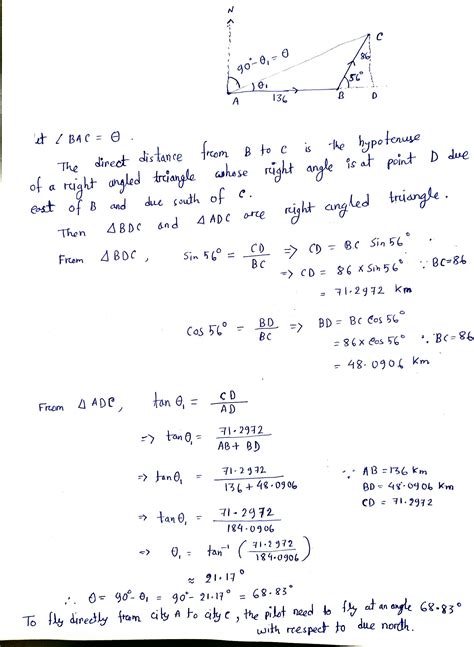 N
C
90° - θ₁ = θ
86
θ₁
56°
A
136
B
D
let ∠BAC = θ.
The direct distance from B to C is the hypotenuse
of a right angled triangle whose right angle is at point D due
east of B and due south of C.
Then △BDC and △ADC are right angled triangle.
From △BDC, Sin 56° = CD/BC => CD = BC Sin 56°
=> CD = 86 × Sin 56° ∵ BC = 86
= 71.2972 Km
Cos 56° = BD/BC => BD = BC Cos 56°
= 86 × Cos 56° ∵ BC = 86
= 48.0906 Km
From △ADC, tan θ₁ = CD/AD
=> tan θ₁ = 71.2972/AB + BD
=> tan θ₁ = 71.2972/136 + 48.0906 ∵ AB = 136 Km
BD = 48.0906 Km
CD = 71.2972
=> tan θ₁ = 71.2972/184.0906
=> θ₁ = tan⁻¹ (71.2972/184.0906)
≈ 21.17°
∴ θ = 90° - θ₁ = 90° - 21.17° = 68.83°
To fly directly from city A to city C, the pilot need to fly at an angle 68.83°
with respect to due north.